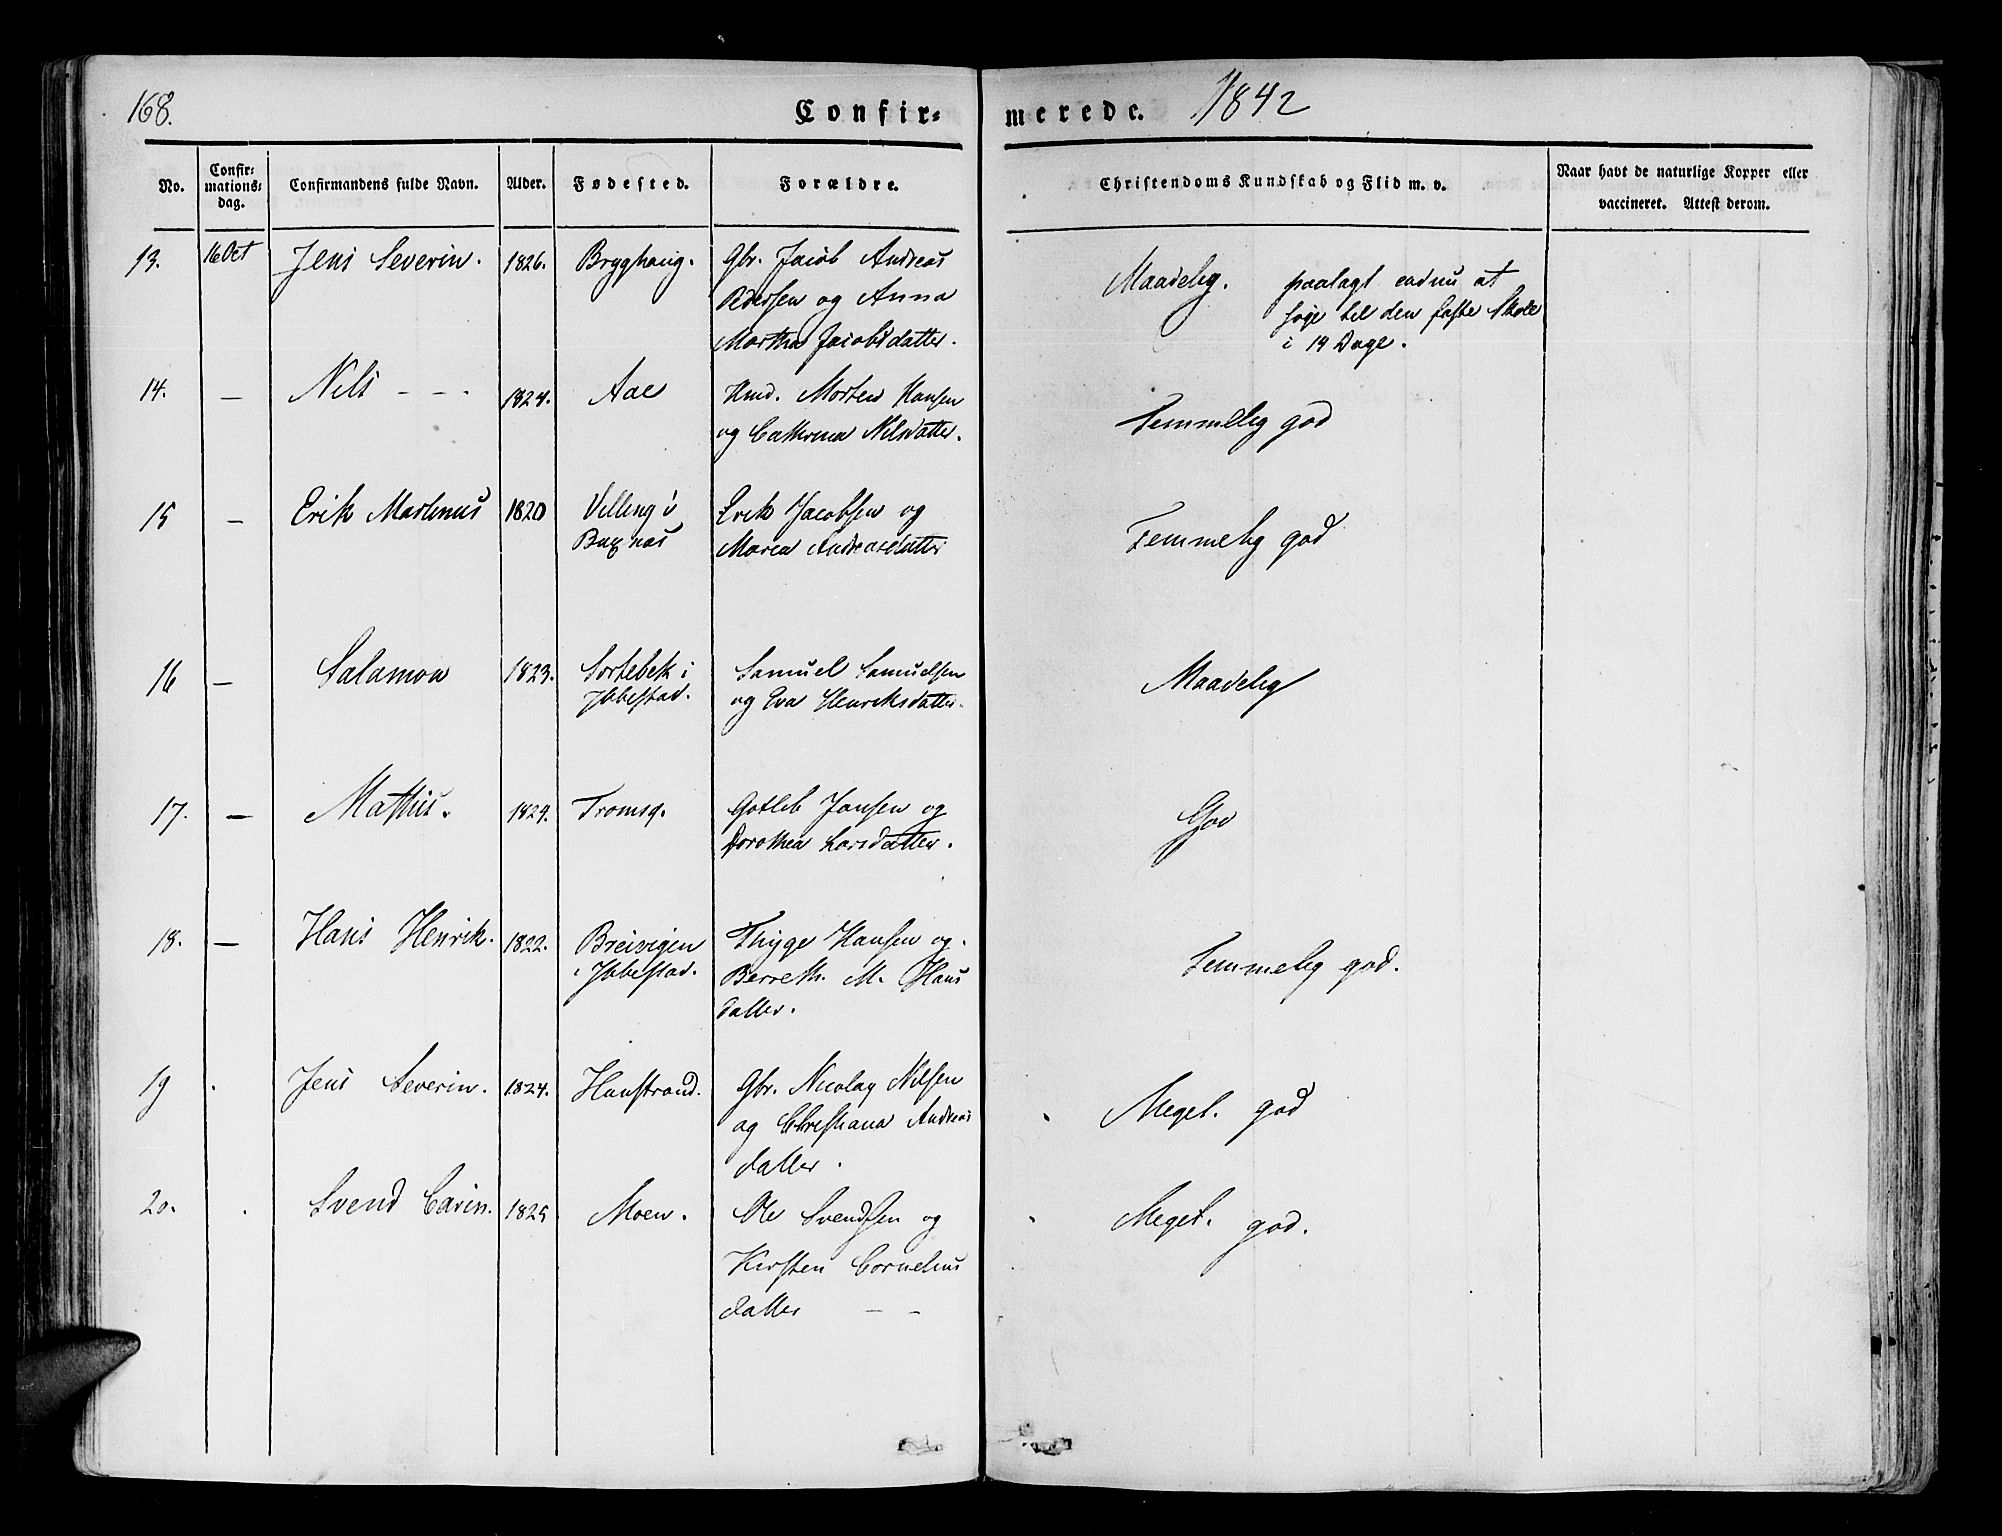 168.
Confir-
merede. 1842
No.
Confirmationsdag.
Confirmandens fulde Navn.
Alder.
Fødested.
Forældre.
Christendoms Kundskab og Flid m. v.
Naar havt de naturlige Kopper eller
vaccineret. Attest derom.
13. 16 Oct Jens Severin. 1826. Bryghaug. Gbr. Jacob Andreas
Pedersen og Anna
Martha Jacobsdatter.
Maadelig. paalagt endnu at
søge til den faste Skole
i 14 Dage.
14. — Nils - - - 1824. Aae Hmd. Morten Hansen
og Cathrina Nilsdatter.
Temmelig god
15 — Erik Martinus 1820 Velling i Erik Jacobsen og
Maria Andreasdatter
Temmelig god
16 — Salamon 1823. Sortebek i Samuel Samuelsen
Ibbestad. og Eva Henriksdatter.
Maadelig
17. — Mathis. 1824. Tromsø. Gotleb Jansen og
Dorothea Larsdatter.
God
18. — Hans Henrik. 1822. Breivigen Thyge Hansen og
i Ibbestad. Bereth. M. Hans
datter.
Temmelig god.
19 . Jens Severin. 1824. Hunstrand. Gbr. Nicolay Nilsen
og Christiana Andreas
datter.
Meget. god
20. . Svend Carin. 1825 Moen. Ole Svendsen og
Kirsten Cornelius
datter — —
Meget. god.